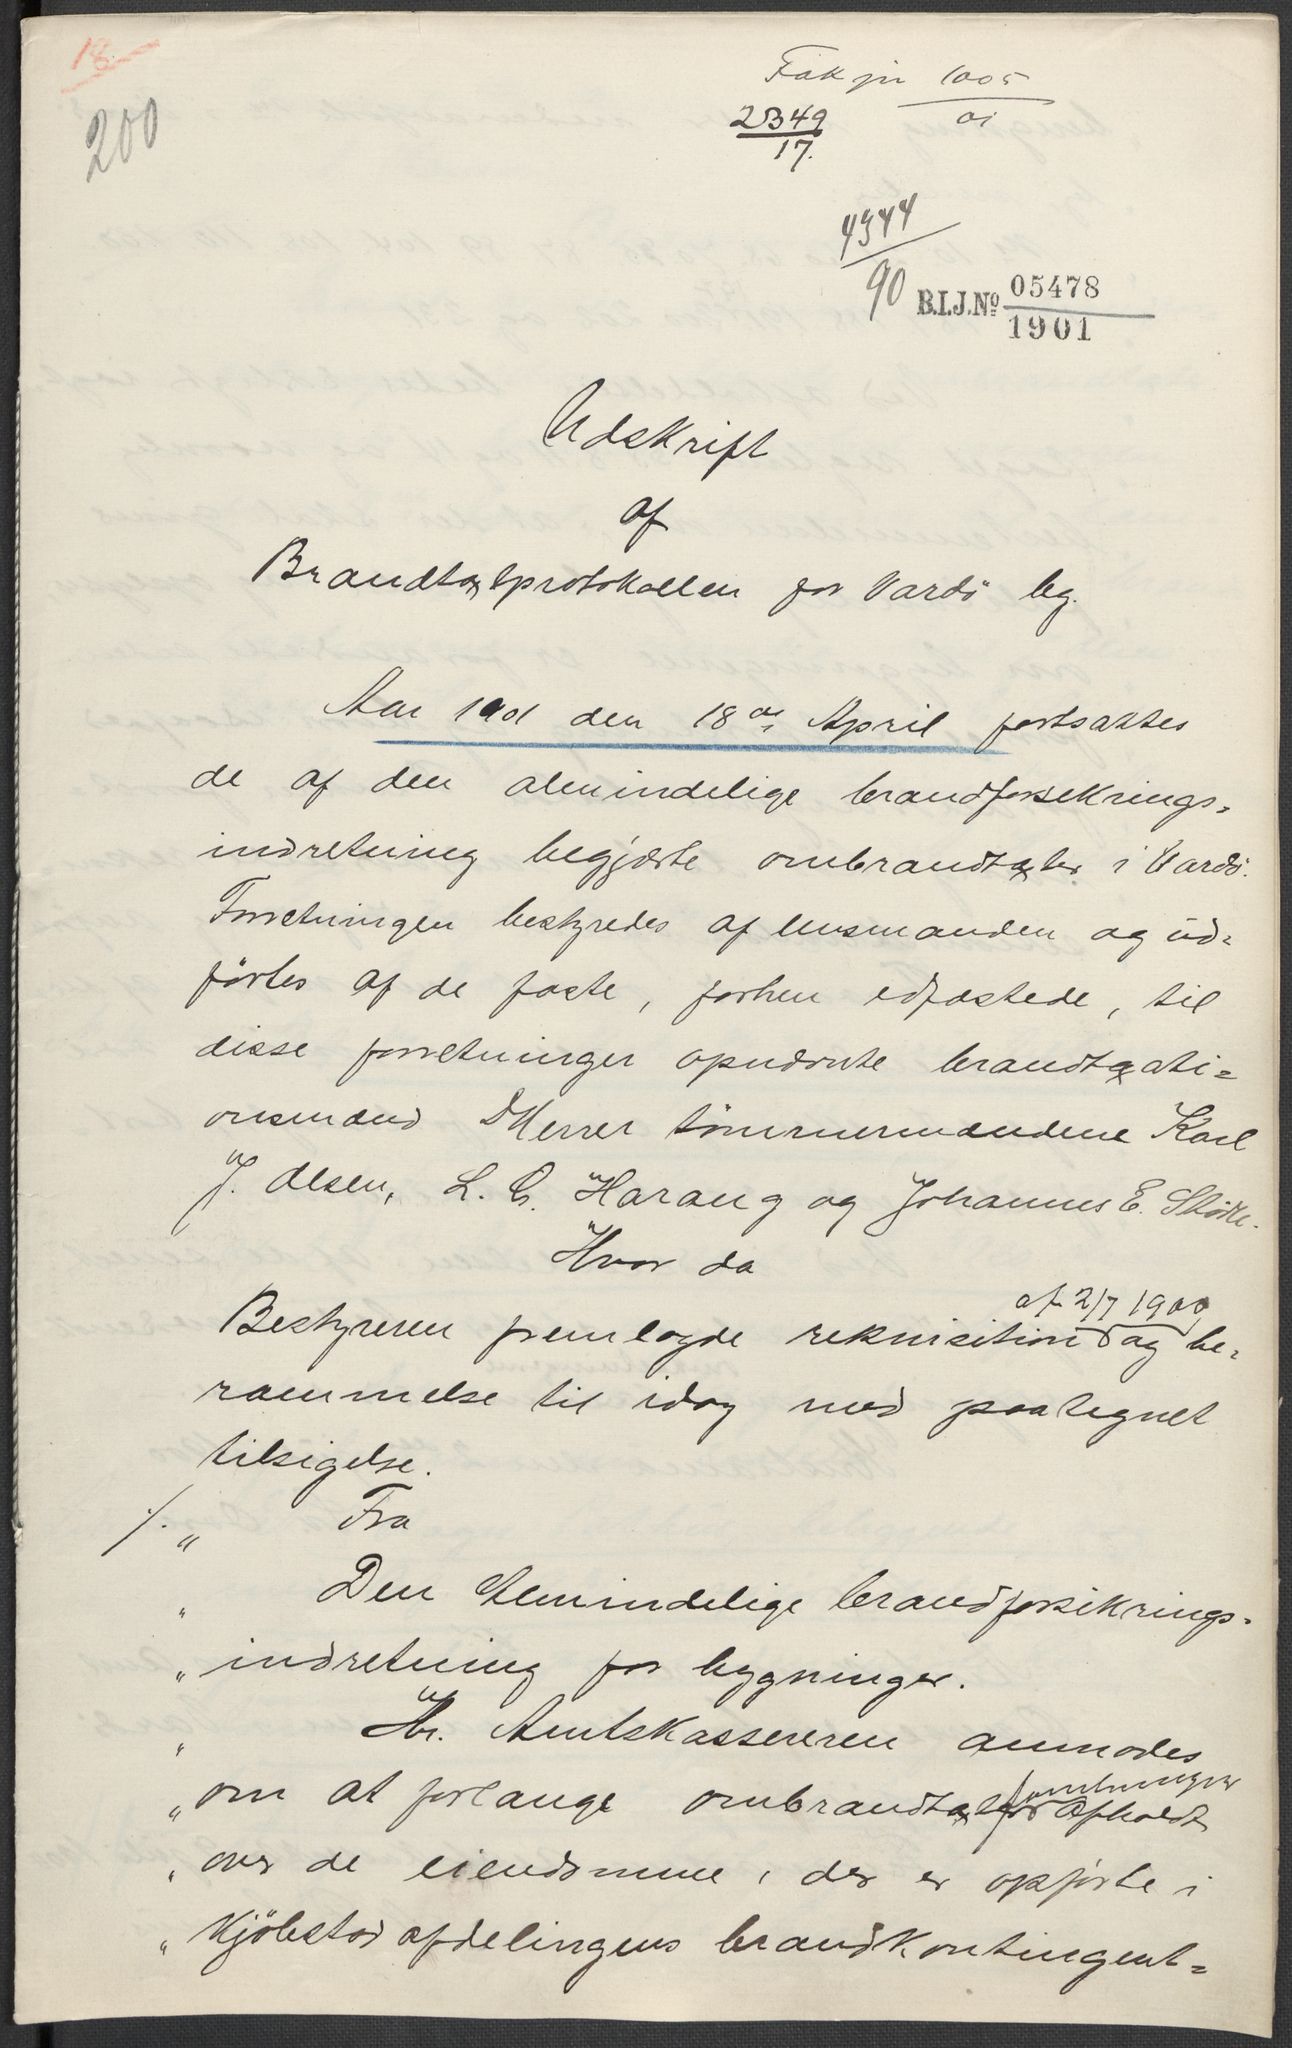 18.
200
Fak jn 1005
01
2349
17.
4344
90
B.I.J.No 05478
1901
Udskrift
af
Brandtaxtprotokollen for Vardö by.
Aar 1901 den 18de April fortsattes
de af den almindelige brandforsikrings-
indretning begjærte ombrandtaxter i Vardö.
Forretningen bestyredes af lensmanden og ud-
förtes af de faste, forhen edfæstede, til
disse forretninger opnævnte brandtaxati-
onsmænd DHerrer tömmermændene Karl
J. Olsen, L. C. Harang og Johannes E.
Hvor da
af 2/7 1900
Bestyreren fremlagde rekvisition og be-
rammelse til idag med paategnet
tilsigelse.
./. „ Fra
„ Den Almindelige brandforsikrings-
„ indretning for bygninger.
„ Hr. Amtskassereren anmodes
„ om at forlange ombrandtaxtforretninger afholdt
„ over de eiendomme, der er opförte i
„ Kjöbstadafdelingens brandkontingent-